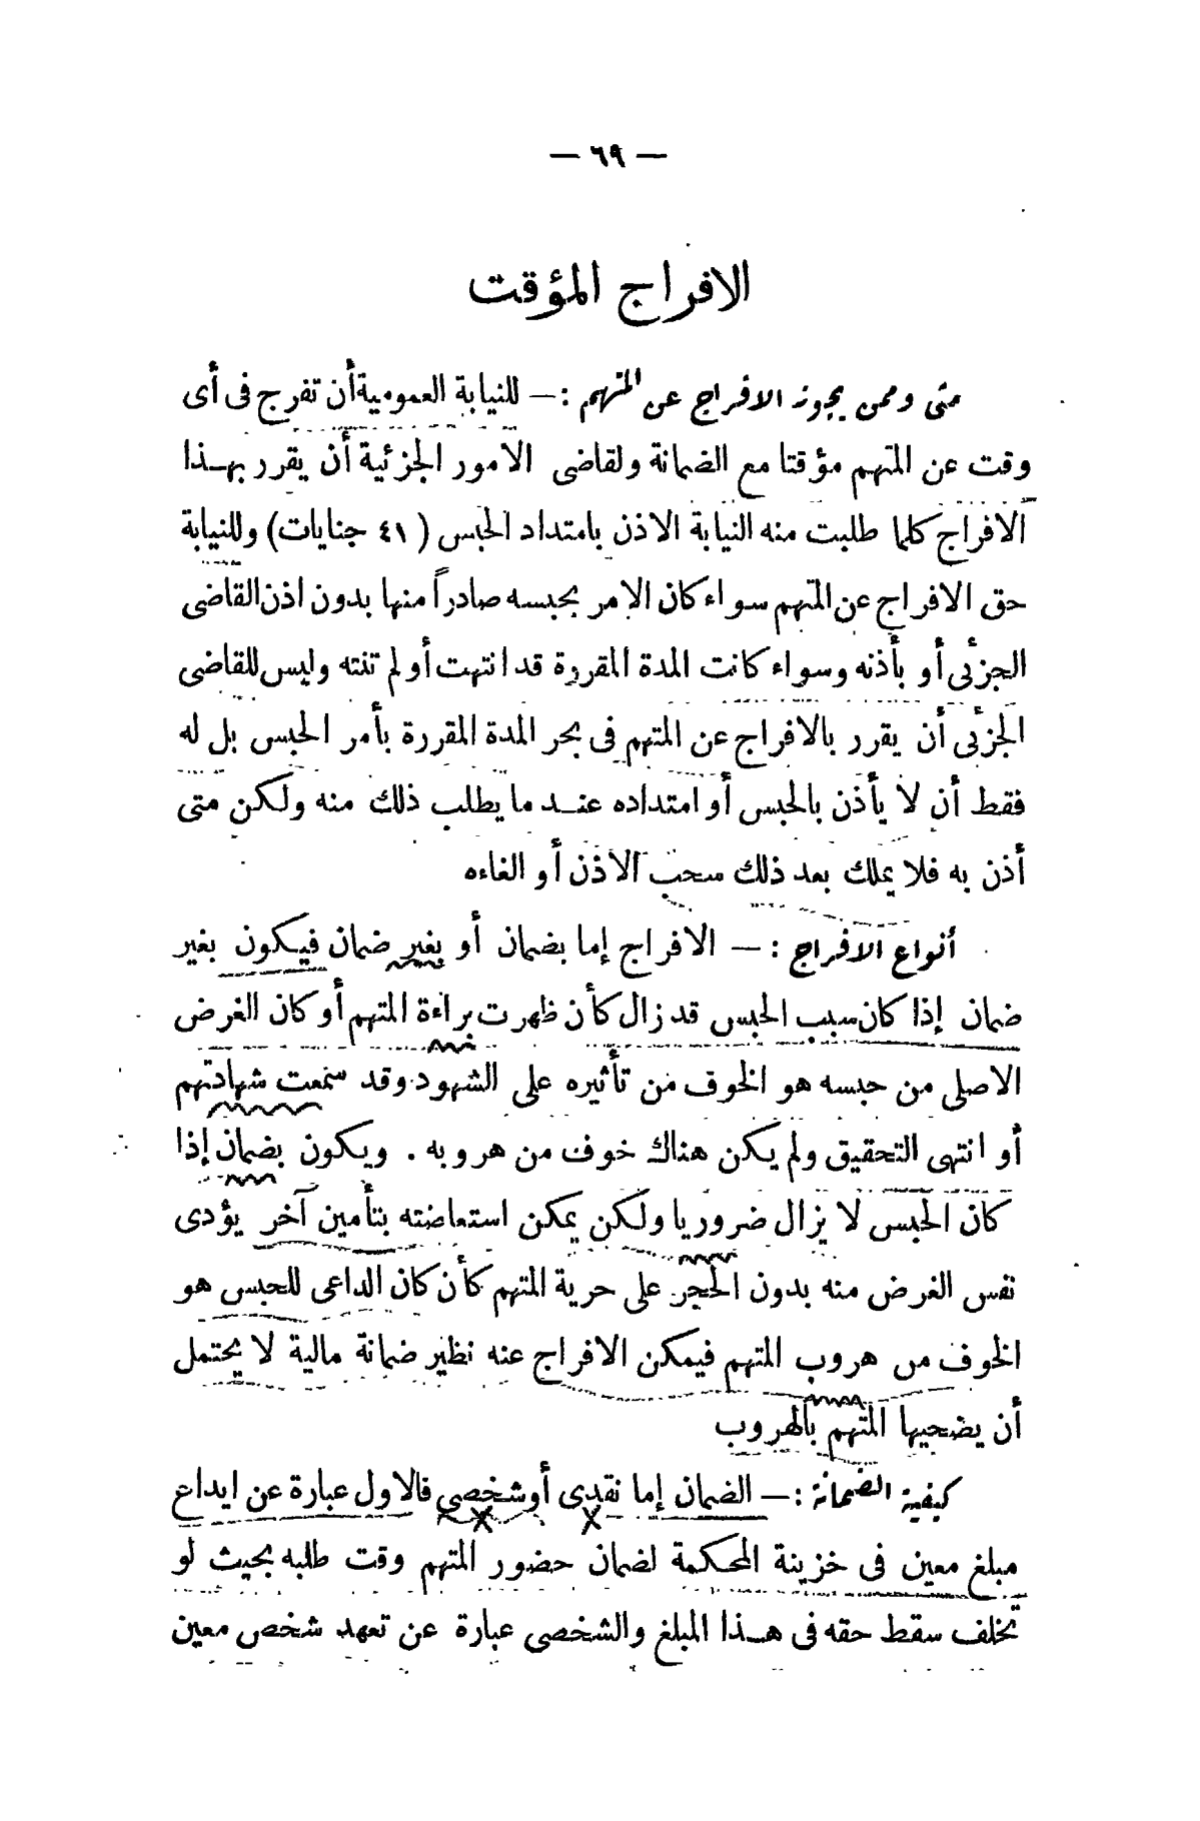 — ٦٩ —
الافراج المؤقت
متى وممن يجوز الافراج عن المتهم : — للنيابة العمومية أن تفرج فى أى
وقت عن المتهم مؤقتا مع الضمانة ولقاضى الامور الجزئية أن يقرر بهذا
الافراج كلما طلبت منه النيابة الاذن بامتداد الحبس ( ٤١ جنايات) وللنيابة
حق الافراج عن المتهم سواء كان الامر بحبسه صادراً منها بدون اذن القاضى
الجزئى أو بأذنه وسواء كانت المدة المقررة قد انتهت أو لم تنته وليس للقاضى
الجزئى أن يقرر بالافراج عن المتهم فى بحر المدة المقررة بأمر الحبس بل له
فقط أن لا يأذن بالحبس أو امتداده عند ما يطلب ذلك منه ولكن متى
أذن به فلا يملك بعد ذلك سحب الاذن أو الغاءه
أنواع الافراج : — الافراج إما بضمان أو بغير ضمان فيكون بغير
ضمان إذا كان سبب الحبس قد زال كأن ظهرت براءة المتهم أو كان الغرض
الاصلى من حبسه هو الخوف من تأثيره على الشهود وقد سمعت شهادتهم
أو انتهى التحقيق ولم يكن هناك خوف من هروبه . ويكون بضمان إذا
كان الحبس لا يزال ضروريا ولكن يمكن استعاضته بتأمين آخر يؤدى
نفس الغرض منه بدون الحجر على حرية المتهم كأن كان الداعى للحبس هو
الخوف من هروب المتهم فيمكن الافراج عنه نظير ضمانة مالية لا يحتمل
أن يضحيها المتهم بالهروب
كيفية الضمانة : — الضمان إما نقدى أو شخصى فالاول عبارة عن ايداع
مبلغ معين فى خزينة المحكمة لضمان حضور المتهم وقت طلبه بحيث لو
تخلف سقط حقه فى هذا المبلغ والشخصى عبارة عن تعهد شخص معين